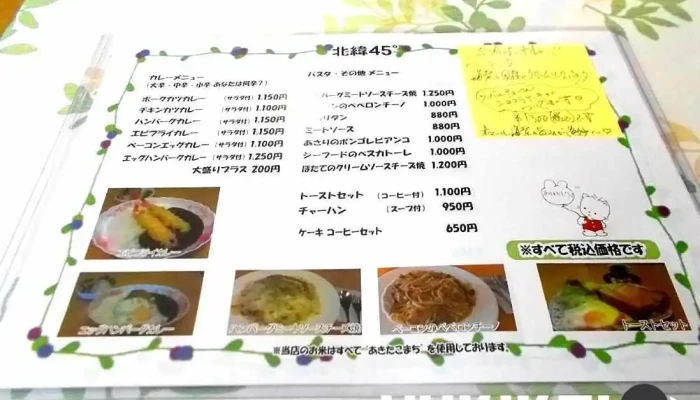 北緯45°
カレーメニュー
(大辛・中辛・小辛 あなたは何辛?)
ポークカツカレー (サラダ付) 1.150円
チキンカツカレー (サラダ付) 1.100円
ハンバーグカレー (サラダ付) 1.150円
エビフライカレー (サラダ付) 1.150円
ベーコンエッグカレー (サラダ付) 1.100円
エッグハンバーグカレー (サラダ付) 1.250円
大盛りプラス 200円
パスタ・その他 メニュー
バーグミートソースチーズ焼 1.250円
ンのペペロンチーノ 1.000円
リタン 880円
ミートソース 880円
あさりのボンゴレビアンコ 1.000円
シーフードのペスカトーレ 1.000円
ほたてのクリームソースチーズ焼 1.200円
トーストセット (コーヒー付) 1.100円
チャーハン (スープ付) 950円
ケーキ コーヒーセット 650円
※すべて税込価格です
エビフライカレー
エッグハンバーグカレー
ハンバーグミートソースチーズ焼
ベーコンのペペロンチーノ
トーストセット
※当店のお米はすべて"あきたこまち"を使用しております。